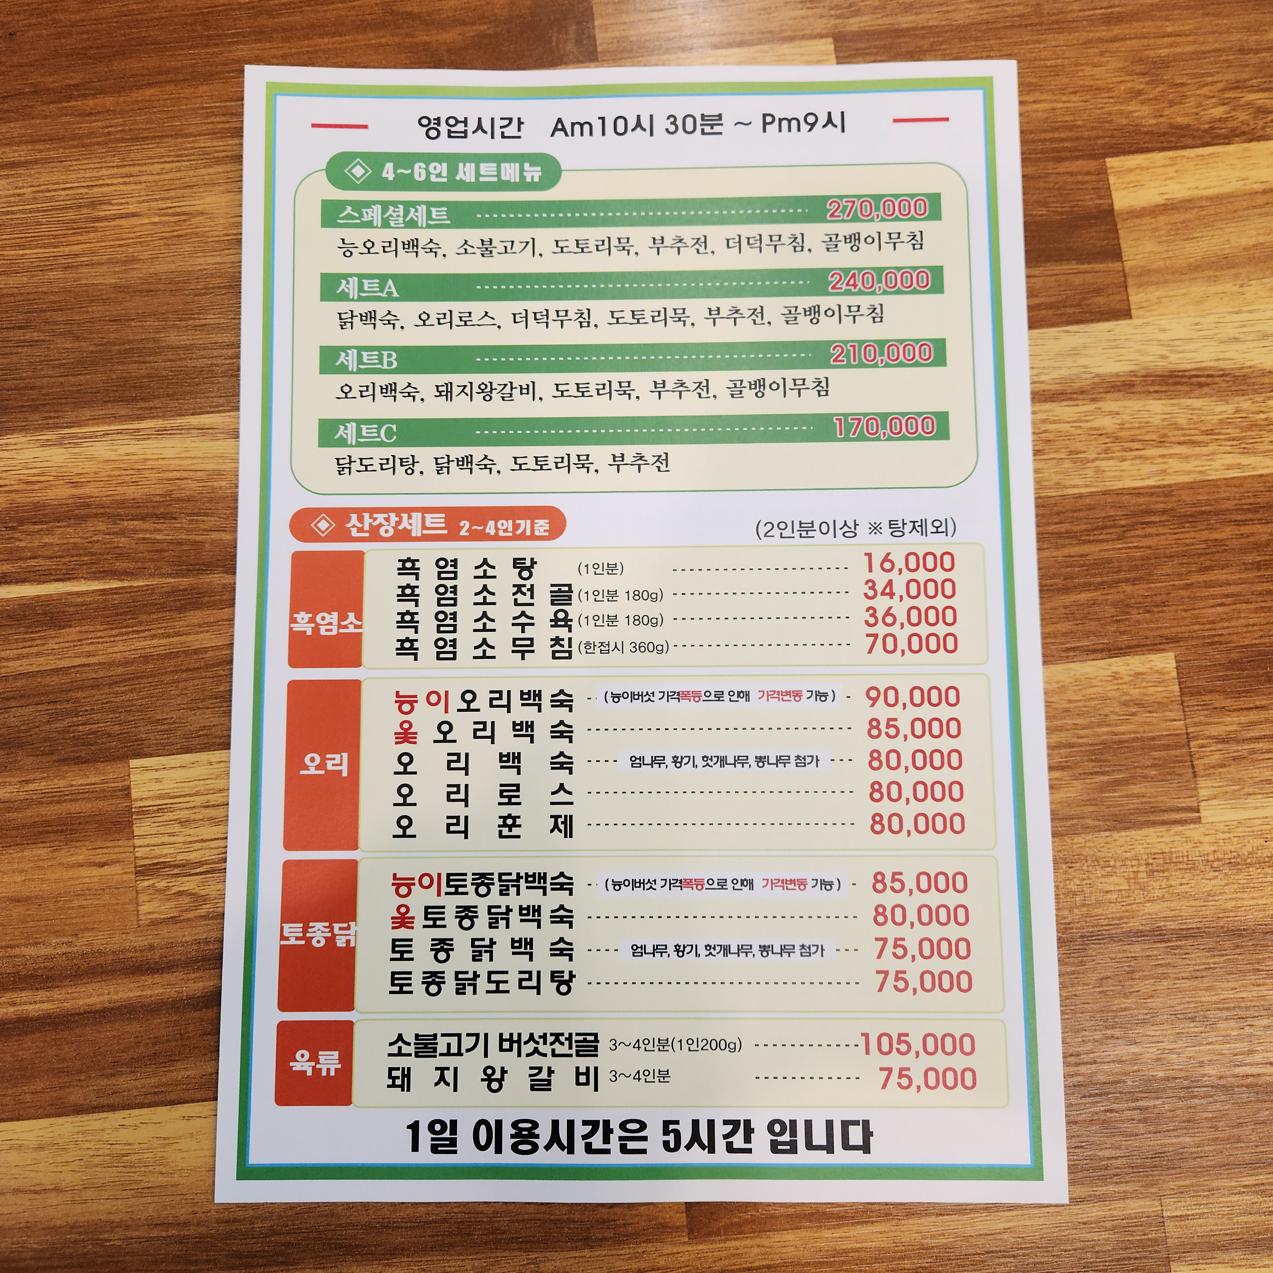 영업시간 Am10시 30분 ~ Pm9시
◈ 4~6인 세트메뉴
스페셜세트 270,000
능오리백숙, 소불고기, 도토리묵, 부추전, 더덕무침, 골뱅이무침
세트A 240,000
닭백숙, 오리로스, 더덕무침, 도토리묵, 부추전, 골뱅이무침
세트B 210,000
오리백숙, 돼지왕갈비, 도토리묵, 부추전, 골뱅이무침
세트C 170,000
닭도리탕, 닭백숙, 도토리묵, 부추전
◈ 산장세트 2~4인기준 (2인분이상 ※ 탕제외)
흑염소
흑염소탕 (1인분) 16,000
흑염소전골 (1인분 180g) 34,000
흑염소수육 (1인분 180g) 36,000
흑염소무침 (한접시 360g) 70,000
오리
능이오리백숙 (능이버섯 가격폭등으로 인해 가격변동 가능) 90,000
옻오리백숙 85,000
오리백숙 엄나무, 황기, 헛개나무, 뽕나무 첨가 80,000
오리로스 80,000
오리훈제 80,000
토종닭
능이토종닭백숙 (능이버섯 가격폭등으로 인해 가격변동 가능) 85,000
옻토종닭백숙 80,000
토종닭백숙 엄나무, 황기, 헛개나무, 뽕나무 첨가 75,000
토종닭도리탕 75,000
육류
소불고기 버섯전골 3~4인분(1인200g) 105,000
돼지왕갈비 3~4인분 75,000
1일 이용시간은 5시간 입니다